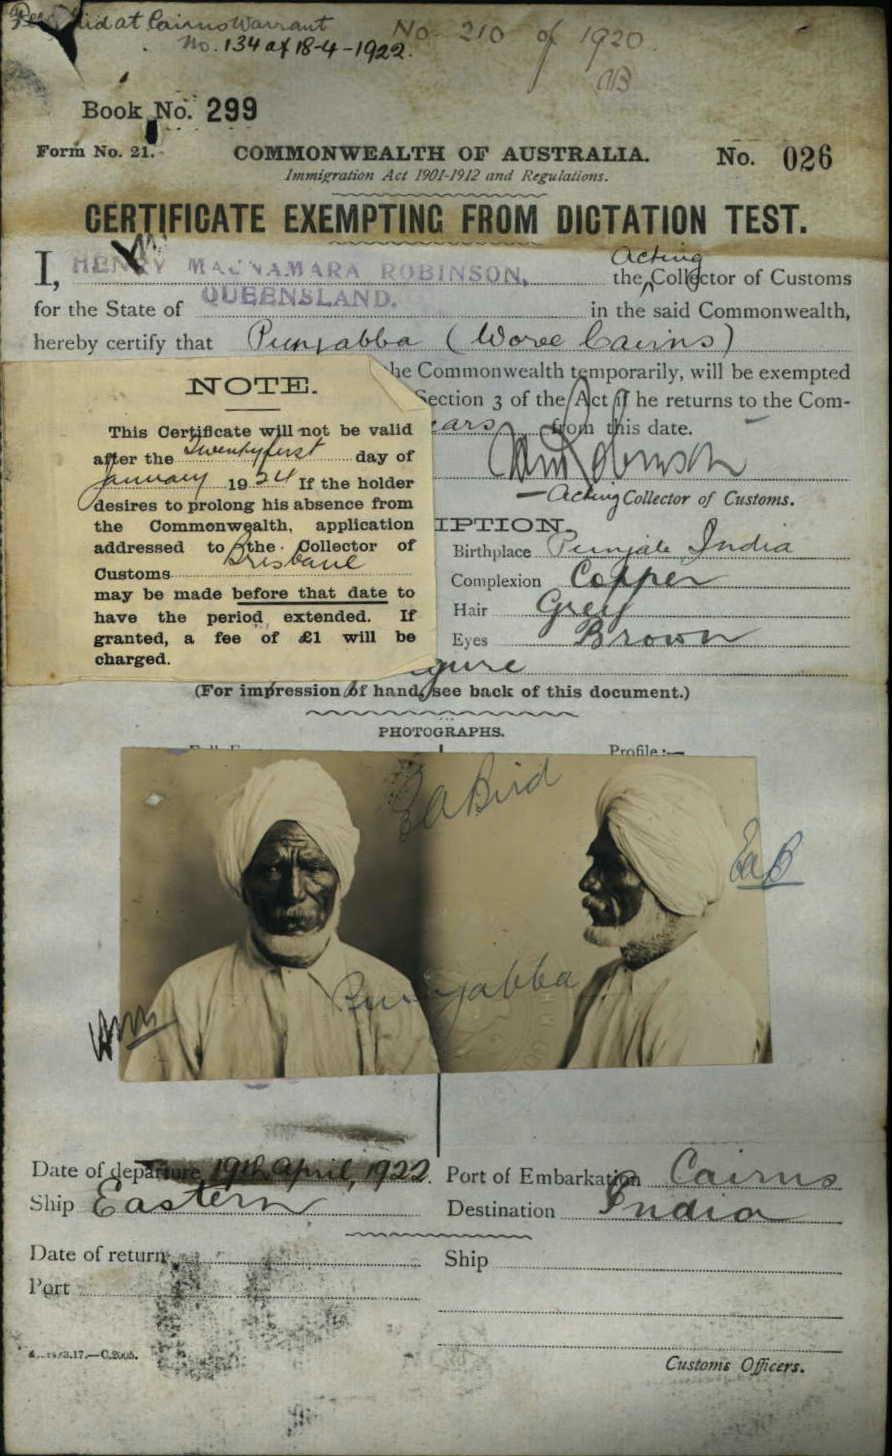 Paid at Cairns Warrant
No. 134 of 18-4-1922.
No 210 of 1920
Book No. 299
Form No. 21.
COMMONWEALTH OF AUSTRALIA.
No. 026
Immigration Act 1901-1912 and Regulations.
CERTIFICATE EXEMPTING FROM DICTATION TEST.
I, HENRY MACNAMARA ROBINSON, the Acting Collector of Customs
for the State of QUEENSLAND. in the said Commonwealth,
hereby certify that Punjabba (Woree Cairns)
the Commonwealth temporarily, will be exempted
Section 3 of the Act if he returns to the Com-
ears from this date.
Acting Collector of Customs.
NOTE.
This Certificate will not be valid
after the Twentyfirst day of
January 1924 If the holder
desires to prolong his absence from
the Commonwealth, application
addressed to the Collector of
Customs Brisbane
may be made before that date to
have the period extended. If
granted, a fee of £1 will be
charged.
IPTION.
Birthplace Punjab India
Complexion Copper
Hair Grey
Eyes Brown
(For impression of hand, see back of this document.)
PHOTOGRAPHS.
Profile :—
Ea Bird
EaB
Punjabba
Date of departure 19th April, 1922.
Port of Embarkation Cairns
Ship Eastern
Destination India
Date of return
Ship
Port
C.2005.
Customs Officers.